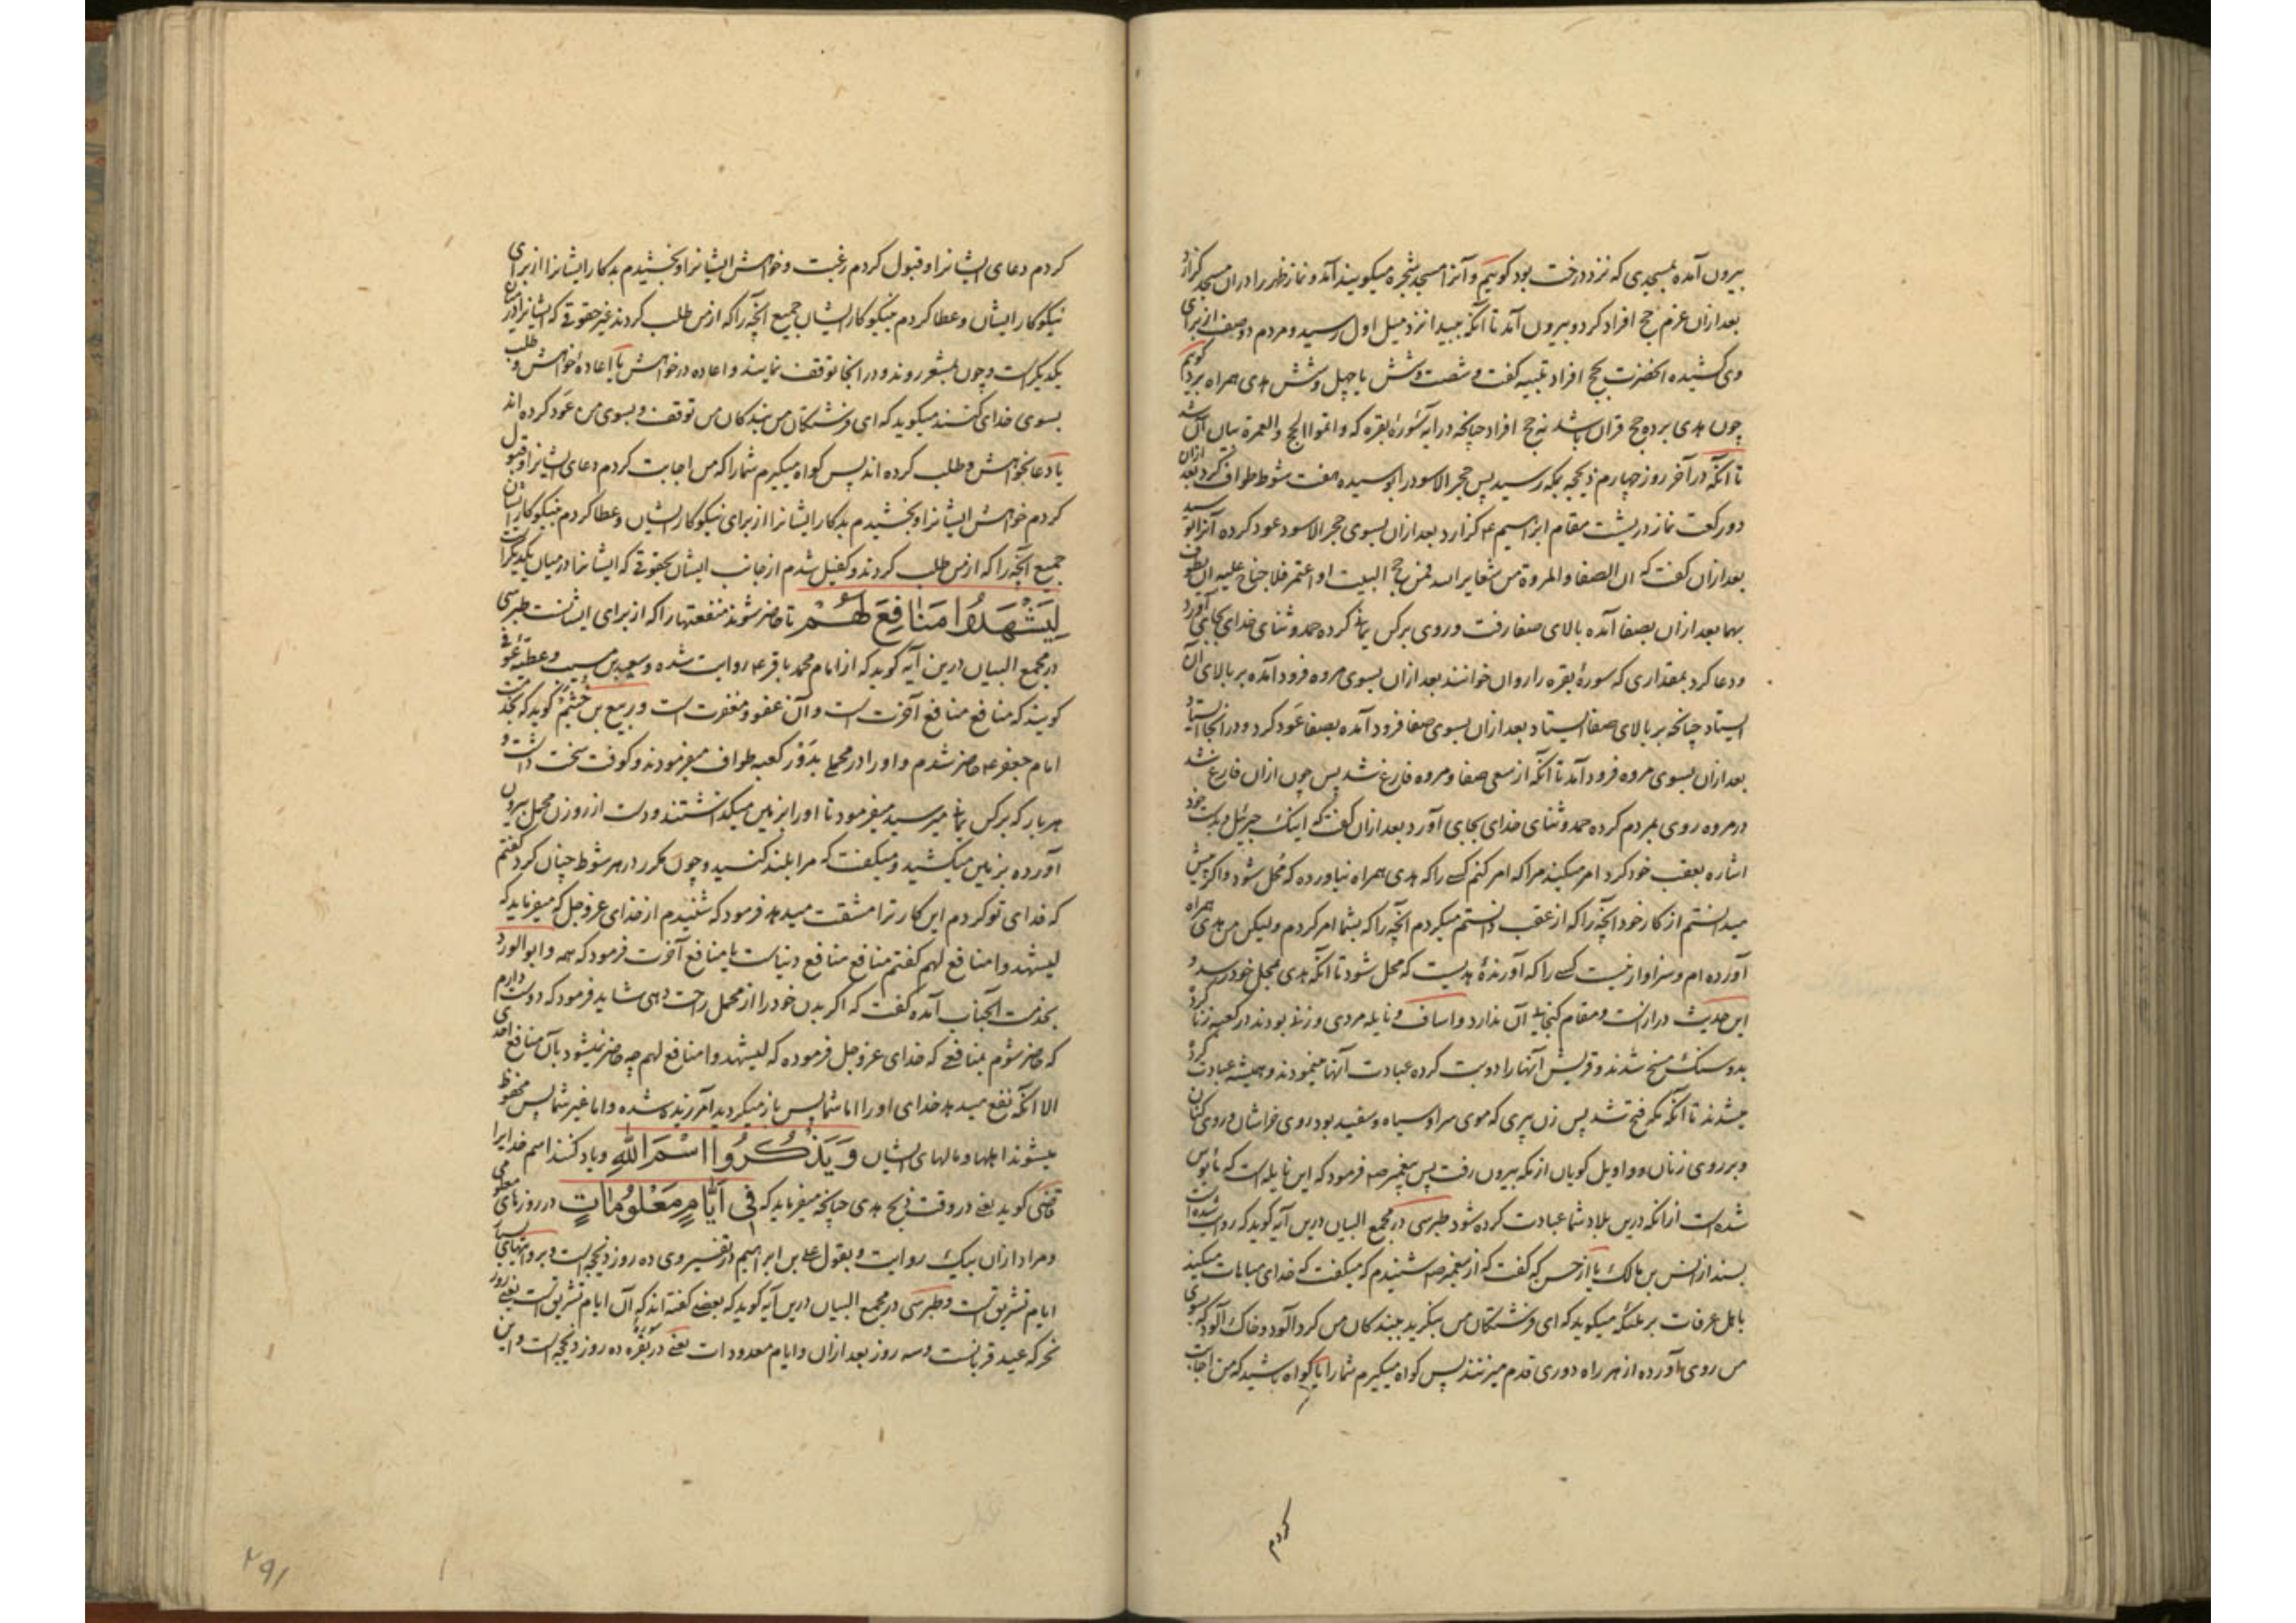 بیرون آمده بمسجدی که نزد درخت بود گوییم و آنرا مسجد شجره میگویند آمد و نماز ظهر را در آن مسجد گزارد
بعد ازان عزم حج افراد کرد و بیرون آمد تا آنکه ببیدا نزد میل اول رسید و مردم دو صف از برای
وی کشیده آنحضرت بحج افراد تلبیه گفت و شصت و شش یا چهل و شش هدی همراه برد گویم
چون هدی برده حج قران باشد نه حج افراد چنانچه در آیه سورهٔ بقره که و اتموا الحج والعمرة بیان آن شد
تا آنکه در آخر روز چهارم ذیحجه بمکه رسید پس حجر الاسود را بوسیده هفت شوط طواف کرد بعد ازان
دو رکعت نماز در پشت مقام ابراهیم ع گزارد بعد ازان بسوی حجر الاسود عود کرده آنرا بوسید
بعد ازان گفت که ان الصفا والمروة من شعایر الله فمن حج البیت او اعتمر فلا جناح علیه ان یطوف
بهما بعد ازان بصفا آمده بالای صفا رفت و روی برکن یمانی کرده حمد و ثنای خدای بجای آورد
و دعا کرد بمقداری که سورهٔ بقره را روان خوانند بعد ازان بسوی مروه فرود آمده بر بالای آن
ایستاد چنانچه بر بالای صفا ایستاد بعد ازان بسوی صفا فرود آمده بصفا عود کرد و در انجا ایستاد
بعد ازان بسوی مروه فرود آمد تا آنکه از سعی صفا و مروه فارغ شد پس چون ازان فارغ شد
در مروه روی بمردم کرده حمد و ثنای خدای بجای آورد بعد ازان گفت که اینک جبرئیل و بدست خود
اشاره بعقب خود کرد امر میکند مرا که امر کنم کسی را که هدی همراه نیاورده که محل شود و اگر پیش
میدانستم از کار خود آنچه را که از عقب دانستم میکردم آنچه را که بشما امر کردم ولیکن من هدی همراه
آورده ام و سزاوار نیست کسی را که آورندهٔ هدیست که محل شود تا آنکه هدی بمحل خود رسد و
این حدیث درازست و مقام گنجایش آن ندارد و اساف و نایله مردی و زنی بودند در کعبه زنا کرد
بدو سنگ مسخ شدند و قریش آنها را دو بت کرده عبادت آنها مینمودند و همیشه عبادت کرد
میشدند تا آنکه مکه فتح شد پس زن پیری که موی سر او سیاه و سفید بود روی خراشان و روی کنان
و بر روی زنان و واویل گویان از مکه بیرون رفت پس پیغمبر صه فرمود که این نایله است که مأیوس
شده است ازانکه درین بلاد شما عبادت کرده شود طبرسی در مجمع البیان درین آیه گوید که روایت شده است
بسند از انس بن مالک یا از حسن که گفت که از پیغمبر صه شنیدم که میگفت که خدای مباهات میکند
باهل عرفات بر ملئکه میگوید که ای فرشتگان من بنگرید ببندگان من گرد آلود و خاک آلود که بسوی
من روی آورده از هر راه دوری قدم میزنند پس گواه میگیرم شما را یا گواه باشید که من اجابت
کردم
کردم دعای ایشانرا و قبول کردم رغبت و خواهش ایشانرا و بخشیدم بدکار ایشانرا از برای
نیکوکار ایشان و عطا کردم نیکوکار ایشان جمیع آنچه را که از من طلب کردند غیر حقوقی که ایشانرا در میان
یکدیگر است و چون بمشعر روند و در انجا توقف نمایند و اعاده درخواهش یا اعاده خواهش و طلب
بسوی خدای کنند میگوید که ای فرشتگان من بندگان من توقف و بسوی من عود کرده اند
یا دعا بخواهش و طلب کرده اند پس گواه میگیرم شما را که من اجابت کردم دعای ایشانرا و قبول
کردم خواهش ایشانرا و بخشیدم بدکار ایشانرا از برای نیکوکار ایشان و عطا کردم نیکوکار ایشان
جمیع آنچه را که از من طلب کردند و کفیل شدم از جانب ایشان بحقوقی که ایشانرا در میان یکدیگر است
لِیَشْهَدُوا مَنَافِعَ لَهُمْ تا حاضر شوند منفعتها را که از برای ایشانست طبرسی
در مجمع البیان درین آیه گوید که از امام محمد باقر ع روایت شده و سعید بن مسیب و عطیه عوفی
گویند که منافع منافع آخرت است و آن عفو و مغفرت است و ربیع بن خثیم گوید که بخدمت
امام جعفر ع حاضر شدم و او را در محملی بدور کعبه طواف میفرمودند و کوفت سخت داشت و
هر بار که برکن یمانی میرسید میفرمود تا او را بزمین میگذاشتند و دست از روزن محمل بیرون
آورده بزمین میکشید و میگفت که مرا بلند کنید و چون مکرر در هر شوط چنان کرد گفتم
که فدای تو کردم این کار ترا مشقت میدهد فرمود که شنیدم از خدای عز و جل که میفرماید که
لیشهدوا منافع لهم گفتم منافع منافع دنیاست یا منافع آخرت فرمود که همه و ابوالورد
بخدمت آنجناب آمده گفت که اگر بدن خود را از محمل راحت دهی شاید فرمود که دوست دارم
که حاضر شوم بمنافعی که خدای عز و جل فرموده که لیشهدوا منافع لهم چه حاضر نمیشود بآن منافع احدی
الا آنکه نفع میدهد خدای او را اما شما پس باز میگردید آمرزیده شده و اما غیر شما پس محفوظ
میشوند اهلها و مالهای ایشان وَیَذْکُرُوا اسْمَ اللهِ و یاد کنند اسم خدایرا
قاضی گوید یعنی در وقت ذبح هدی چنانچه میفرماید که فِی اَیَّامٍ مَعْلُومَاتٍ در روزهای معلومی
و مراد ازان بیک روایت و بقول علی بن ابراهیم در تفسیر وی ده روز ذیحجه است و بروایتهای
ایام تشریق است و طبرسی در مجمع البیان درین آیه گوید که بعضی گفته اند که آن ایام تشریق است یعنی روز
نحر که عید قربانست و سه روز بعد ازان و ایام معدودات یعنی در سورهٔ بقره ده روز ذیحجه است و این
۲۹۱